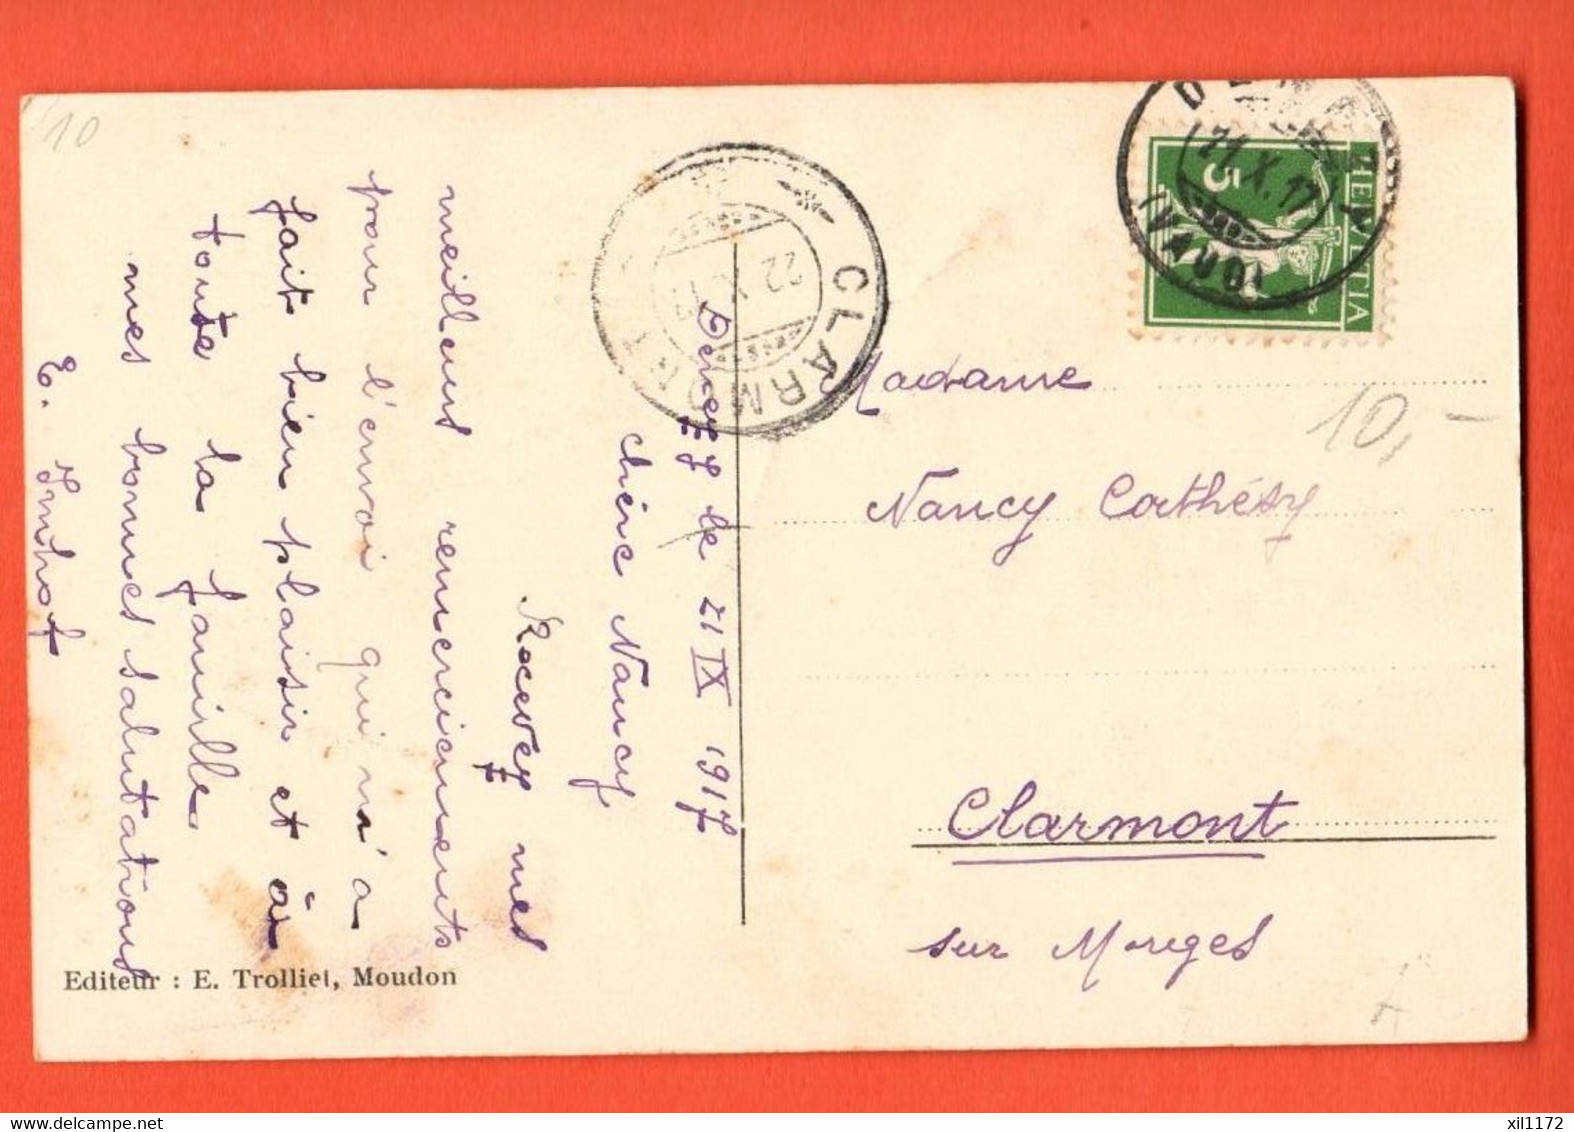 10
Denezy le 21 IX 1917
Chère Nancy
Recevez mes
meilleurs remerciements
pour l'envoi qui m'a
fait bien plaisir et à
toute la famille,
mes bonnes salutations
E. Imhof
Editeur : E. Trolliet, Moudon
CLARMONT
22.X.17
DENEZY
21.X.17
(VAUD)
HELVETIA
5
Madame
10,-
Nancy Corthésy
Clarmont
sur Morges
delcampe.net
xil1172